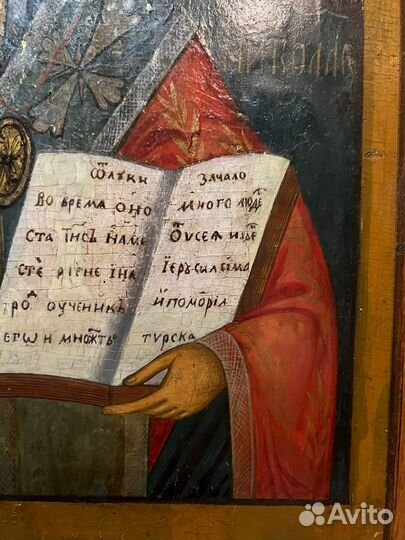 НИКОЛАЕ
Ѿ луки
Во время оно
ста їисъ на мѣ
стѣ рaвне і на
род оученикъ
егѡ и множтъ
зачало
много людѣ
Ѿ всея июде
Іерусалима
и поморїя
турска
Avito